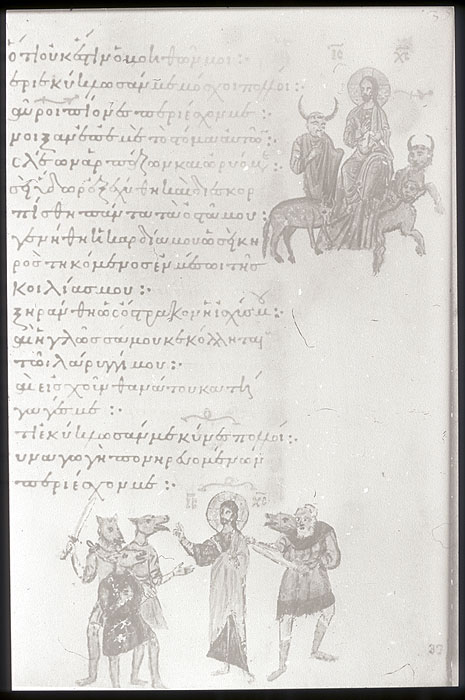 ὅτι οὐκ ἔστιν ὁ βοηθῶν μοι:
εριεκύκλωσάν με μόσχοι πολλοί:
αῦροι πίονες περιέσχον με:
νοιξαν ἐπ' ἐμὲ τὸ στόμα αὐτῶν:
ς λέων ἁρπάζων καὶ ὠρυόμ
σεὶ ὕδωρ ἐξεχύθη καὶ διεσκορ
πίσθη πάντα τὰ ὀστᾶ μου:
γενήθη ἡ καρδία μου ὡσεὶ κη
ρὸς τηκόμενος ἐν μέσῳ τῆς
κοιλίας μου:
ξηράνθη ὡς ὄστρακον ἡ ἰσχύς μου:
αὶ ἡ γλῶσσά μου κεκόλληται
τῷ λάρυγγί μου:
αὶ εἰς χοῦν θανάτου κατή
γαγές με:
τι ἐκύκλωσάν με κύνες πολλοί:
υναγωγὴ πονηρευομένων
περιέσχον με:
ΙC ΧC
ΙC ΧC